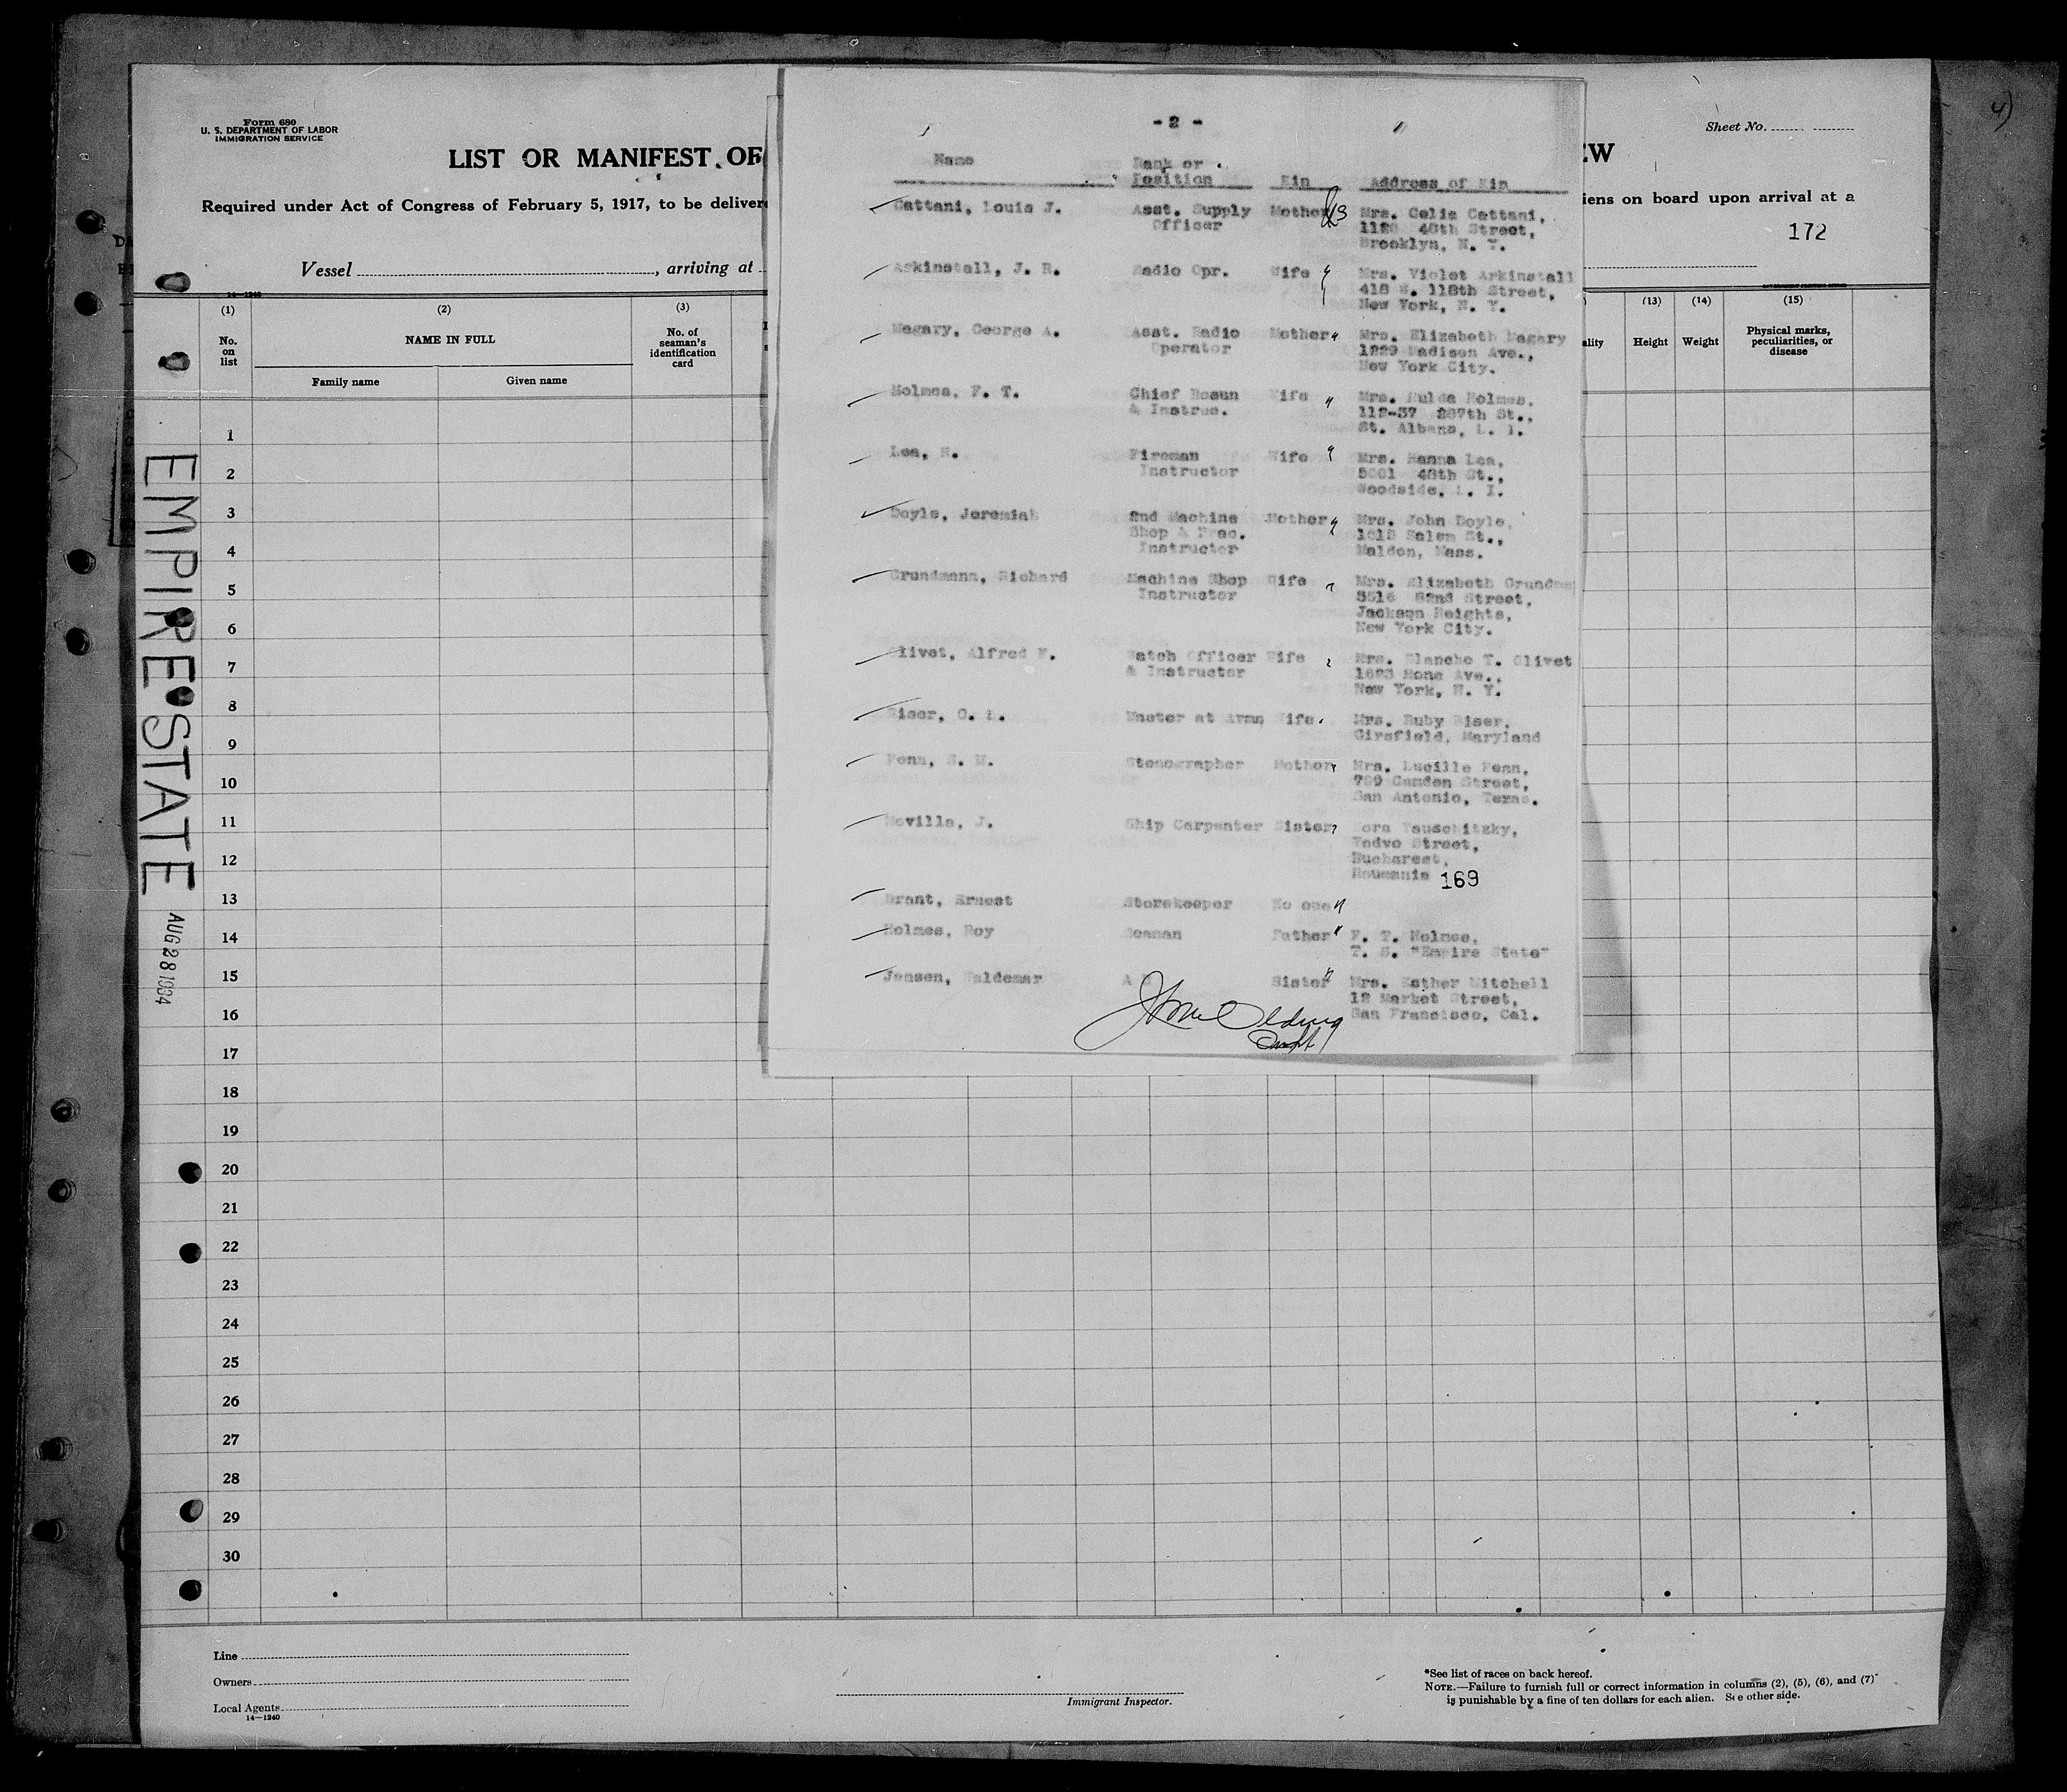 Form 680
U. S. DEPARTMENT OF LABOR
IMMIGRATION SERVICE
Sheet No.
LIST OR MANIFEST OF
EW
Required under Act of Congress of February 5, 1917, to be deliver
iens on board upon arrival at a
172
Vessel , arriving at
14—1240
(1) (2) (3) (13) (14) (15)
No. on list
NAME IN FULL
Family name Given name
No. of seaman's identification card
ality
Height Weight
Physical marks, peculiarities, or disease
- 2 -
Name Rank or Position Kin Address of Kin
Cattani, Louis J. Asst. Supply Mother Mrs. Celia Cattani,
Officer Street,
Brooklyn, N. Y.
Arkinstall, J. R. Radio Opr. Wife Mrs. Violet Arkinstall
418 W. 118th Street,
New York, N. Y.
Magary, George A. Asst. Radio Mother Mrs. Elizabeth Magary
Operator 1829 Madison Ave.,
New York City.
Holmes, F. T. Chief Bosun Wife Mrs. Hulda Holmes,
& Instruc. 112-37 207th St.,
St. Albans, L. I.
Lea, H. Fireman Wife Mrs. Hanna Lea,
Instructor 48th St.,
Woodside, L. I.
Doyle, Jeremiah 2nd Machine Mother Mrs. John Doyle,
Shop & Prac. Salem St.,
Instructor Malden, Mass.
Grundmann, Richard Machine Shop Wife Mrs. Elizabeth Grundma
Instructor 82nd Street,
Jackson Heights,
New York City.
Olivet, Alfred F. Watch Officer Wife Mrs. Blanche T. Olivet
& Instructor Hone Ave.,
New York, N. Y.
Riser, O. L. Master at Arms Wife Mrs. Ruby Riser,
Maryland
Fenn, S. M. Stenographer Mother Mrs. Lucille Fenn,
Camden Street,
San Antonio, Texas.
J. Ship Carpenter Sister
Street,
Bucharest,
Roumania 169
Brant, Ernest Storekeeper No one
Holmes, Roy Seaman Father F. T. Holmes,
T. S. "Empire State"
Jensen, Waldemar Sister Mrs. Esther Mitchell
12 Market Street,
San Francisco, Cal.
1
2
3
4
5
6
7
8
9
10
11
12
13
14
15
16
17
18
19
20
21
22
23
24
25
26
27
28
29
30
EMPIRE STATE
AUG 28 1934
Line
Owners
Local Agents
14—1240
Immigrant Inspector.
*See list of races on back hereof.
NOTE.—Failure to furnish full or correct information in columns (2), (5), (6), and (7)
is punishable by a fine of ten dollars for each alien. See other side.